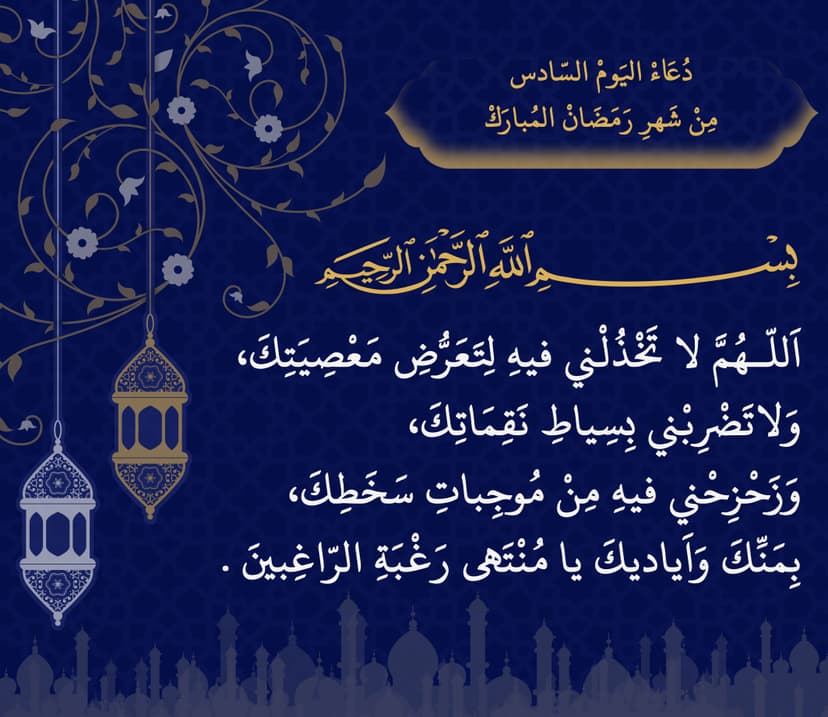 دُعَاءْ اليَومْ السّادس
مِنْ شَهرِ رَمَضَانْ المُبارَكْ
بِسْــــمِ ٱللَّهِ ٱلرَّحْمَٰنِ ٱلرَّحِيمِ
اَللّـهُمَّ لا تَخْذُلْني فيهِ لِتَعَرُّضِ مَعْصِيَتِكَ،
وَلاتَضْرِبْني بِسِياطِ نَقِمَاتِكَ،
وَزَحْزِحْني فيهِ مِنْ مُوجِباتِ سَخَطِكَ،
بِمَنِّكَ وَاَياديكَ يا مُنْتَهى رَغْبَةِ الرّاغِبينَ .